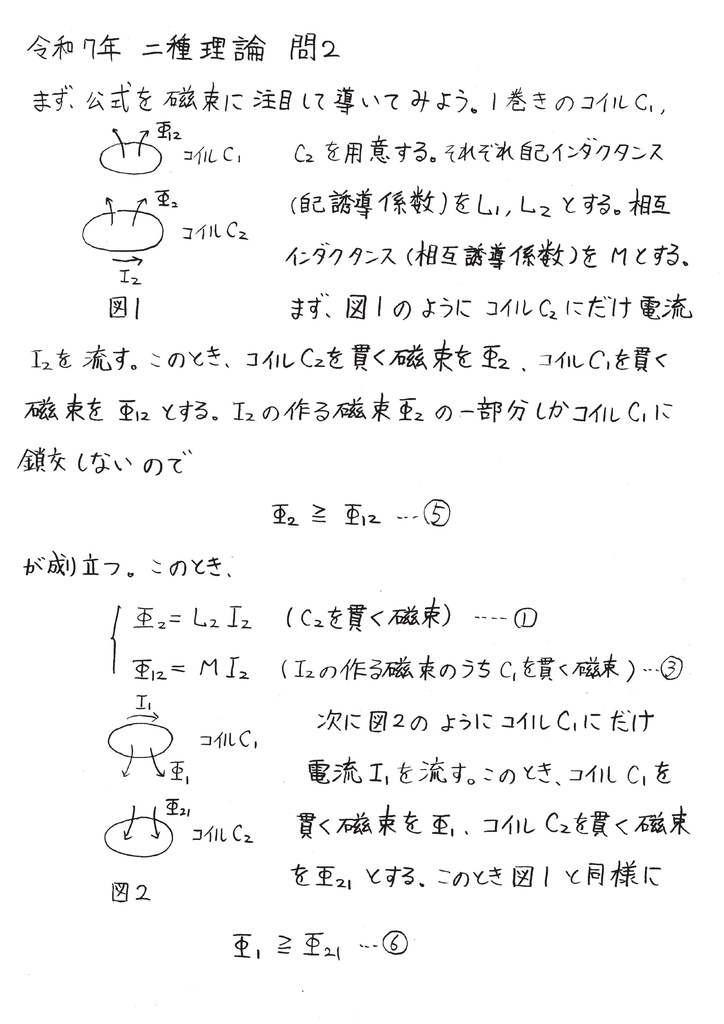 令和7年 二種理論 問2
まず、公式を磁束に注目して導いてみよう。1巻きのコイルC₁,
Φ₁₂
コイルC₁
C₂を用意する。それぞれ自己インダクタンス
Φ₂
コイルC₂
(自己誘導係数)をL₁, L₂とする。相互
I₂
インダクタンス(相互誘導係数)をMとする。
図1
まず、図1のようにコイルC₂にだけ電流
I₂を流す。このとき、コイルC₂を貫く磁束をΦ₂、コイルC₁を貫く
磁束をΦ₁₂とする。I₂の作る磁束Φ₂の一部分しかコイルC₁に
鎖交しないので
Φ₂ ≧ Φ₁₂ …⑤
が成り立つ。このとき、
Φ₂ = L₂ I₂ (C₂を貫く磁束) ……①
Φ₁₂ = M I₂ (I₂の作る磁束のうちC₁を貫く磁束) …③
I₁
コイルC₁
Φ₁
次に図2のようにコイルC₁にだけ
電流I₁を流す。このとき、コイルC₁を
Φ₂₁
コイルC₂
貫く磁束をΦ₁、コイルC₂を貫く磁束
図2
をΦ₂₁とする。このとき図1と同様に
Φ₁ ≧ Φ₂₁ …⑥